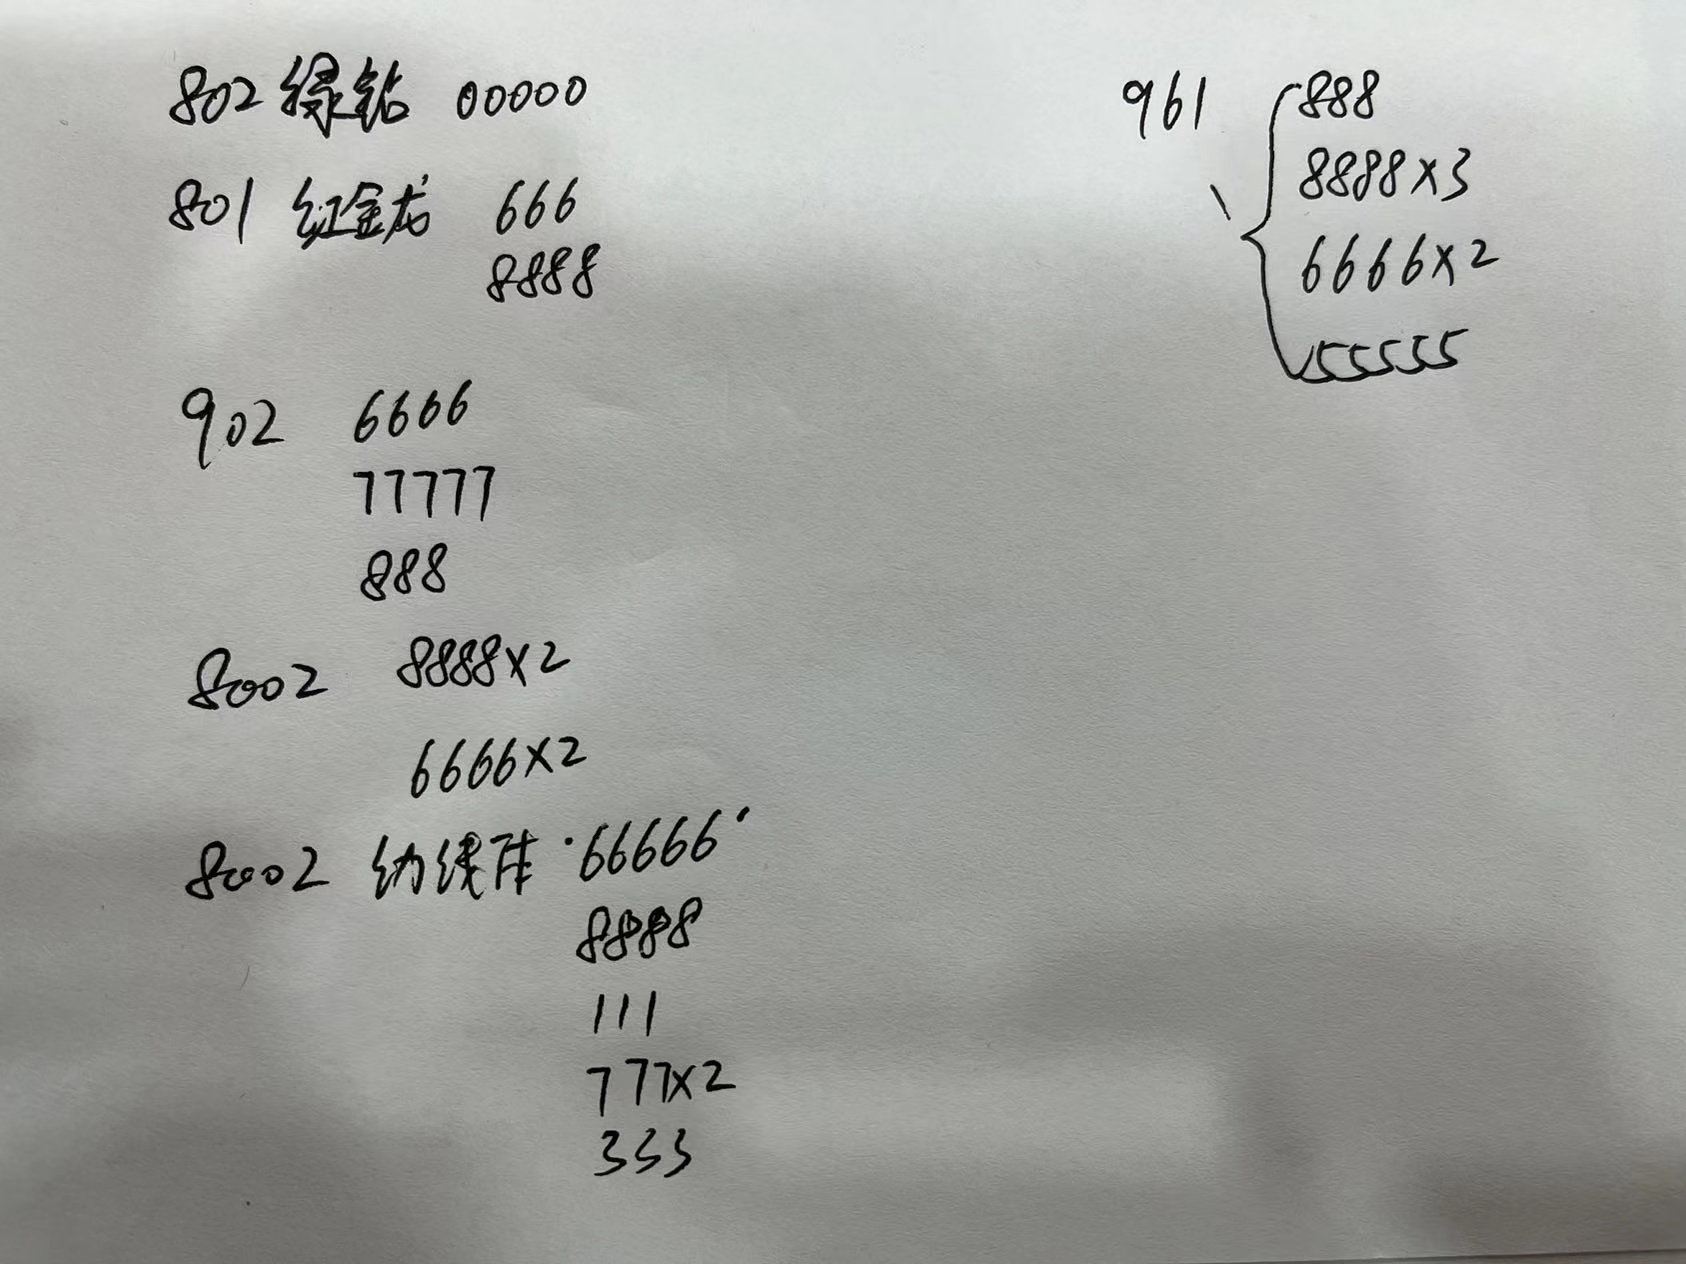 802 绿钻 00000
801 红金龙 666
8888
902 6666
77777
888
8002 8888×2
6666×2
8002 幼线体 66666
8888
111
777×2
333
961 888
8888×3
6666×2
55555